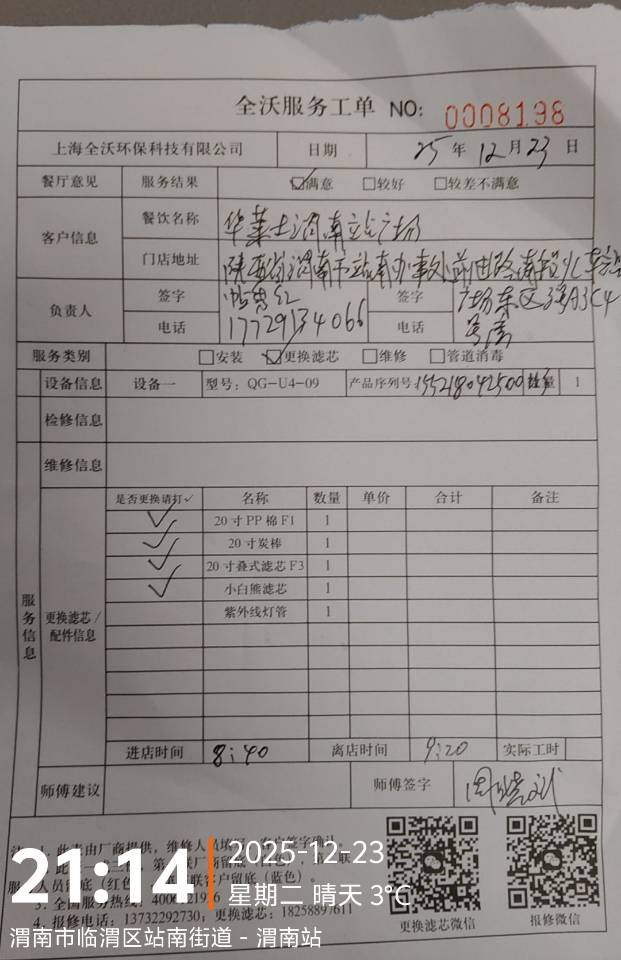 全沃服务工单 NO: 0008198
上海全沃环保科技有限公司 日期 25 年 12 月 23 日
餐厅意见 服务结果 ☑满意 □较好 □较差不满意
客户信息 餐饮名称 华莱士渭南站广场
门店地址 陕西省渭南市站南办事处前进路南段火车站
广场东区3号A3C4
号房
负责人 签字 签字
电话 17729134066 电话
服务类别 □安装 ☑更换滤芯 □维修 □管道消毒
设备信息 设备一 型号: QG-U4-09 产品序列号: 数量 1
检修信息
维修信息
服务信息
更换滤芯/
配件信息
是否更换请打✓ 名称 数量 单价 合计 备注
✓ 20寸PP棉F1 1
✓ 20寸炭棒 1
✓ 20寸叠式滤芯F3 1
✓ 小白熊滤芯 1
紫外线灯管 1
进店时间 8:40 离店时间 9:20 实际工时
师傅建议 师傅签字
1、此表由厂商提供，维修人
3、全国服务热线:
4、报修电话: 13732292730; 更换滤芯: 18258897611
更换滤芯微信 报修微信
21:14
2025-12-23
星期二 晴天 3°C
渭南市临渭区站南街道 - 渭南站